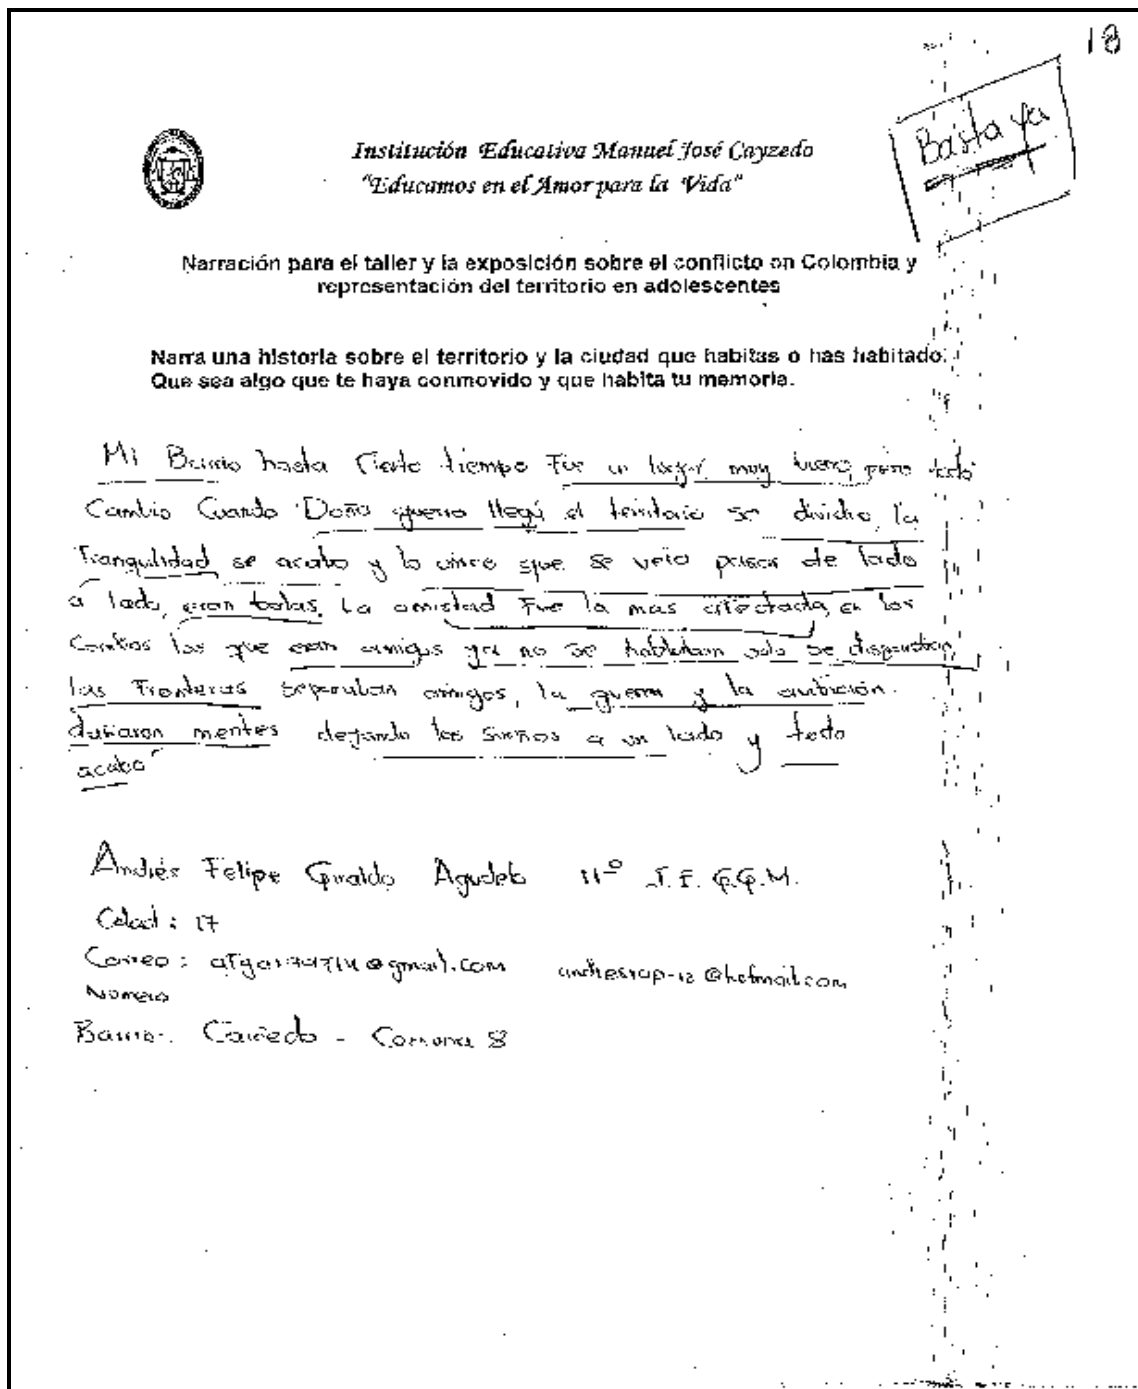 18
Basta ya
Institución Educativa Manuel José Cayzedo
"Educamos en el Amor para la Vida"
Narración para el taller y la exposición sobre el conflicto en Colombia y
representación del territorio en adolescentes
Narra una historia sobre el territorio y la ciudad que habitas o has habitado.
Que sea algo que te haya conmovido y que habita tu memoria.
Mi Barrio hasta Cierto tiempo Fue un lugar muy bueno, pero todo
Cambio Cuando Doña guerra llegó el territorio se dividio, la
Tranquilidad se acabo y lo unico que se veia pasar de lado
a lado, eran balas. La amistad Fue la mas afectada, en los
Combos los que eran amigos ya no se hablaban solo se disparaban,
las Fronteras separaban amigos, la guerra y la ambición
dañaron mentes dejando los sueños a un lado y todo
acabó
Andrés Felipe Giraldo Agudelo 11° J.F. G.G.M.
Edad: 17
Correo: @gmail.com @hotmail.com
Número
Barrio: Caicedo - Comuna 8